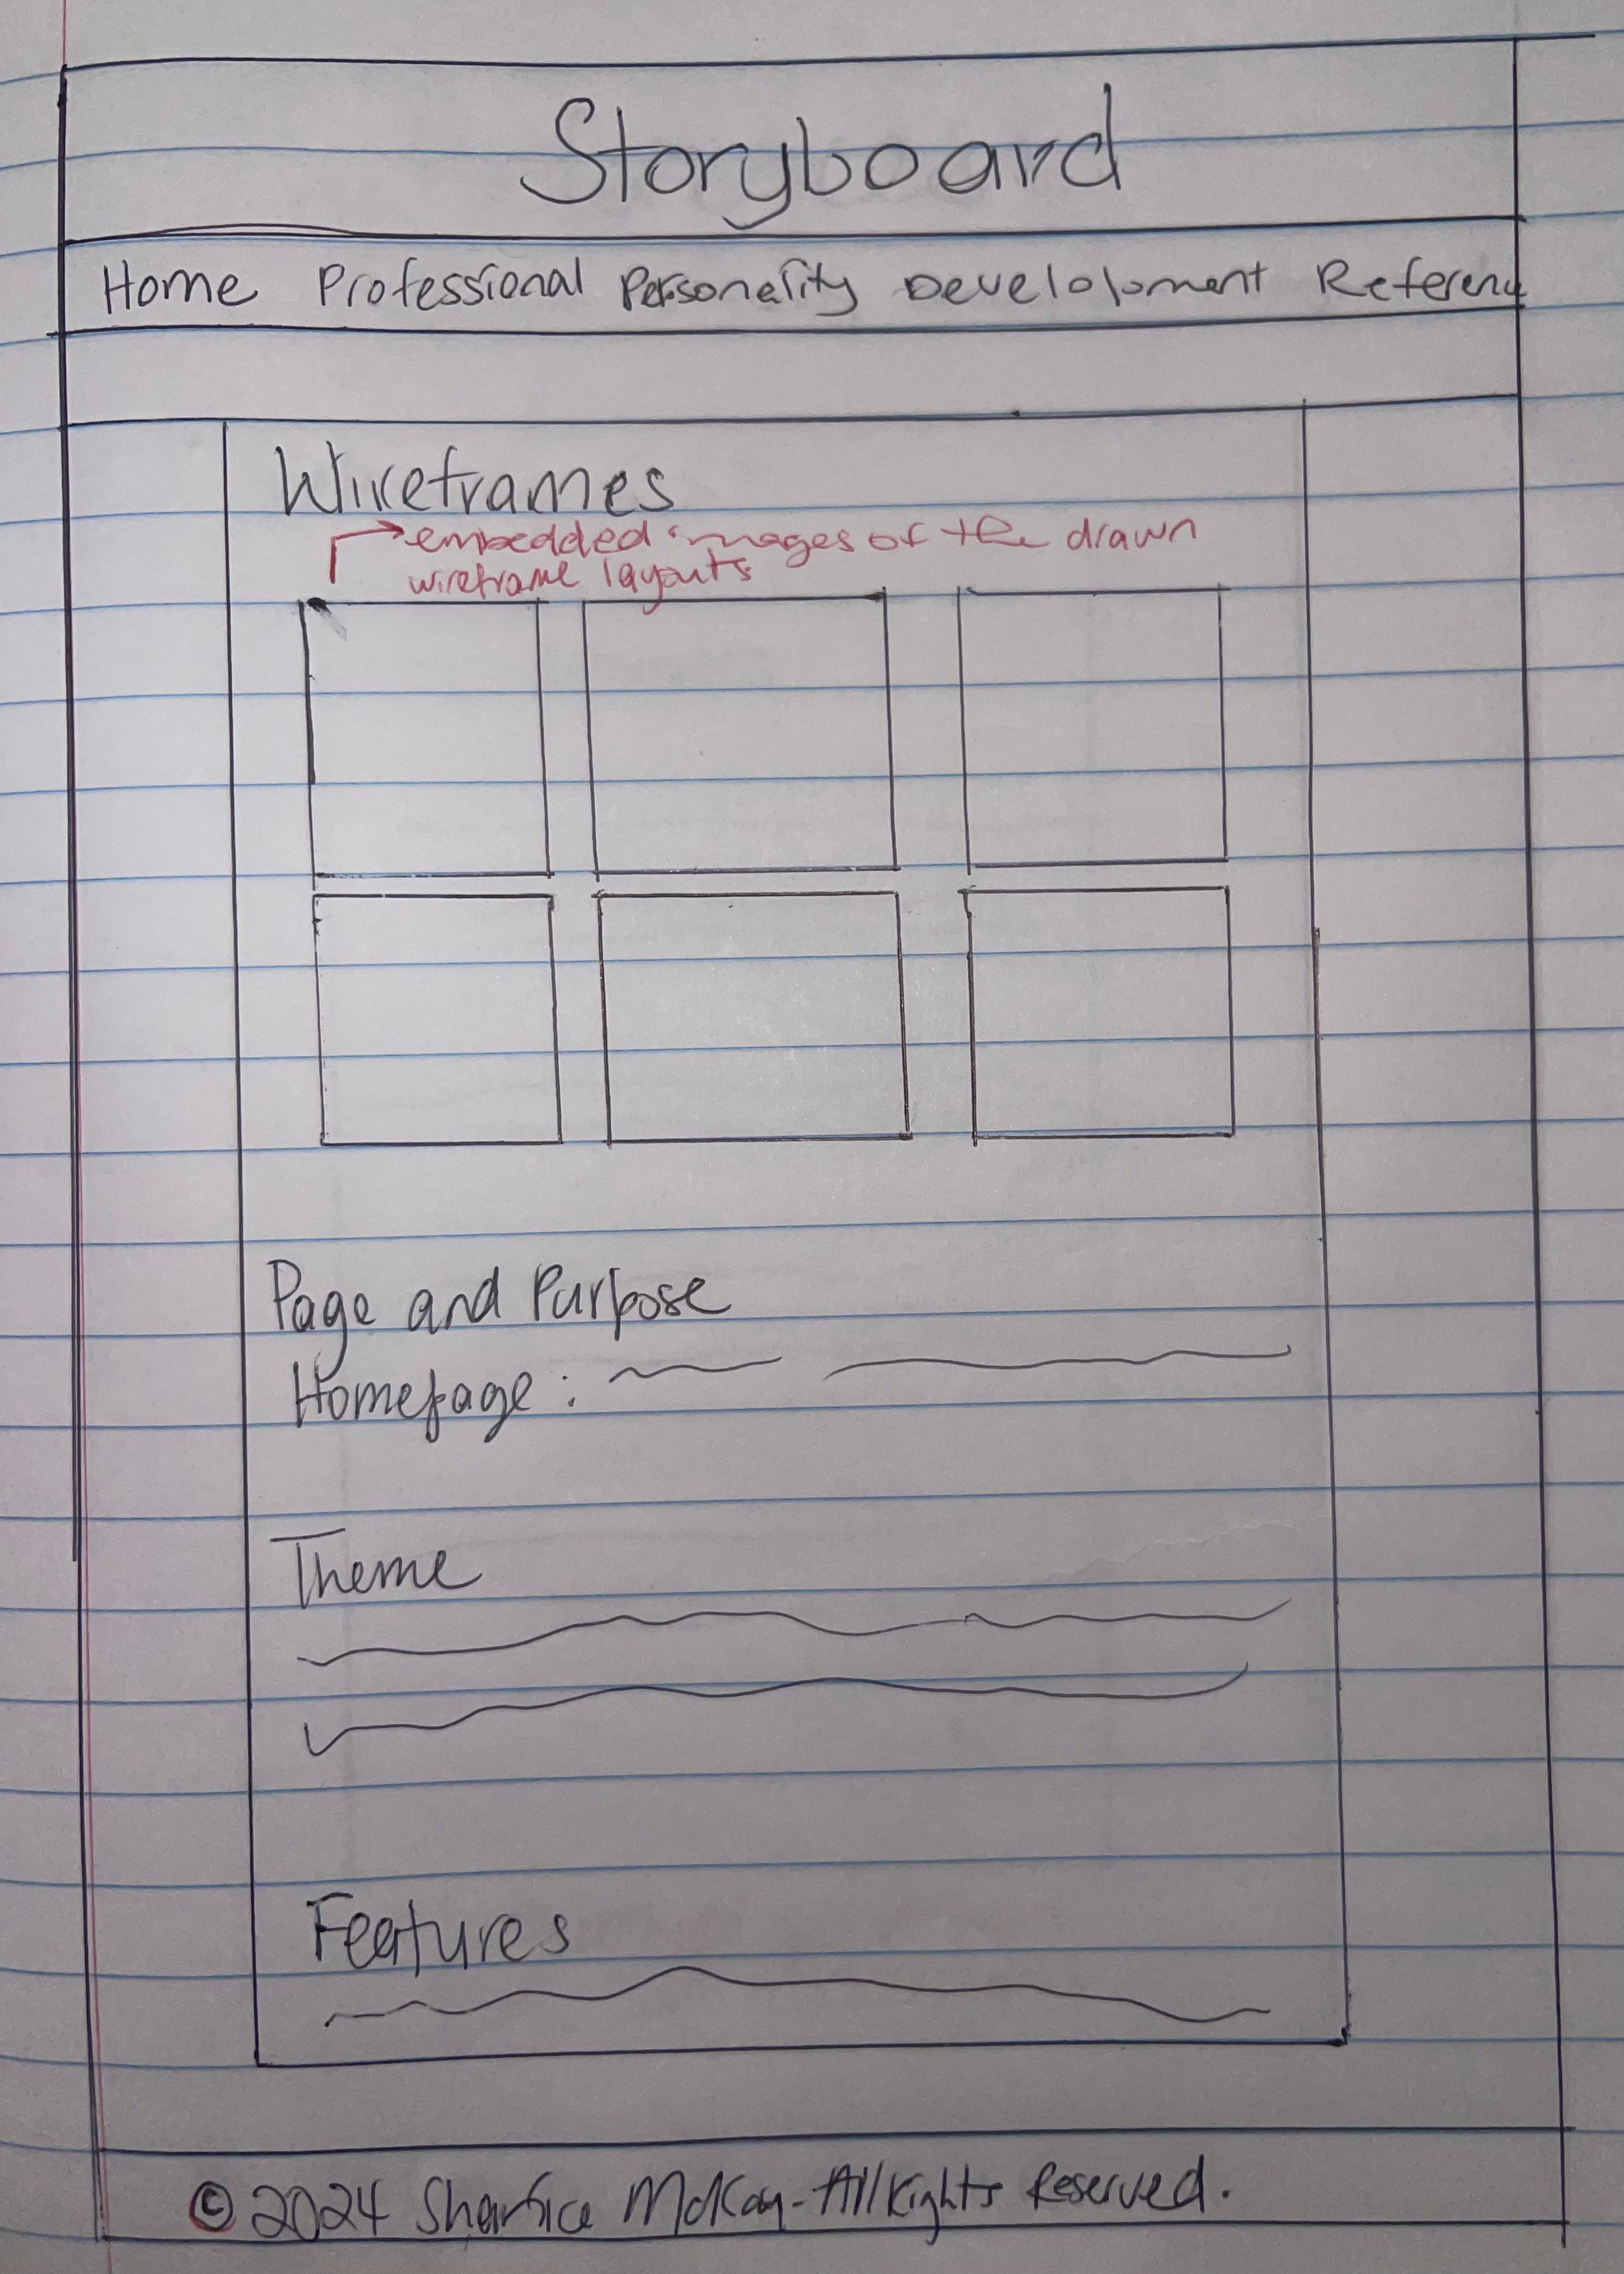 Storyboard
Home Professional Personality Develolopment Referenc
Wireframes
embedded images of the drawn
wireframe layouts
Page and Purpose
Homepage:
Theme
Features
© 2024 McKay - All Rights Reserved.